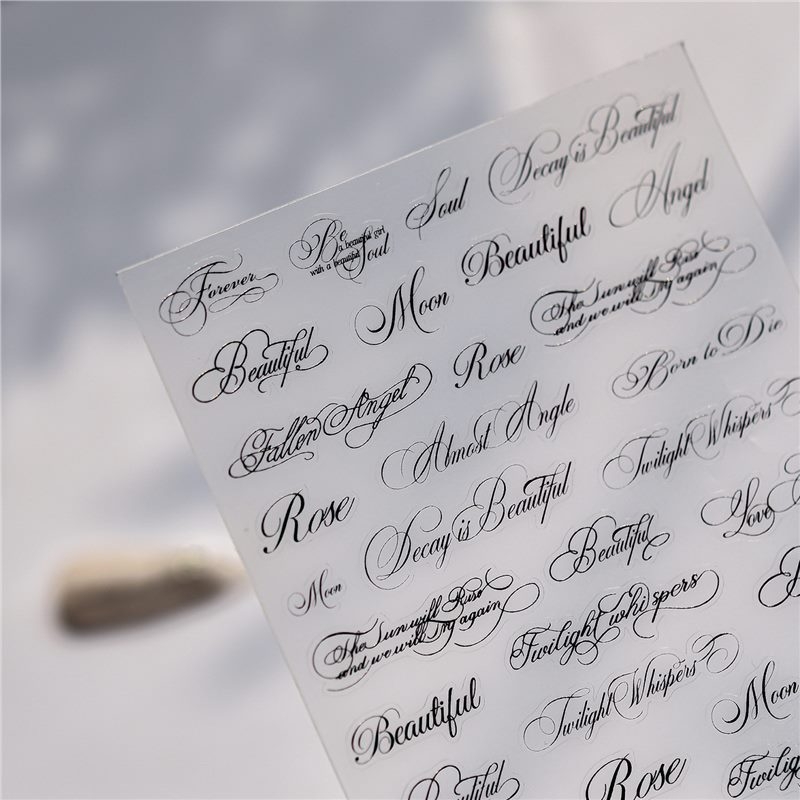 Forever
Be
a beautiful girl
with a beautiful
Soul
Soul
Decay is Beautiful
Beautiful
Moon
Beautiful
Angel
Fallen Angel
Rose
The Sun will Rise
and we will Try again
Rose
Almost Angle
Born to Die
Moon
Decay is Beautiful
Twilight Whispers
The Sun will Rise
and we will Try again
Beautiful
Love
Beautiful
Twilight whispers
Twilight Whispers
Moon
Beautiful
Rose